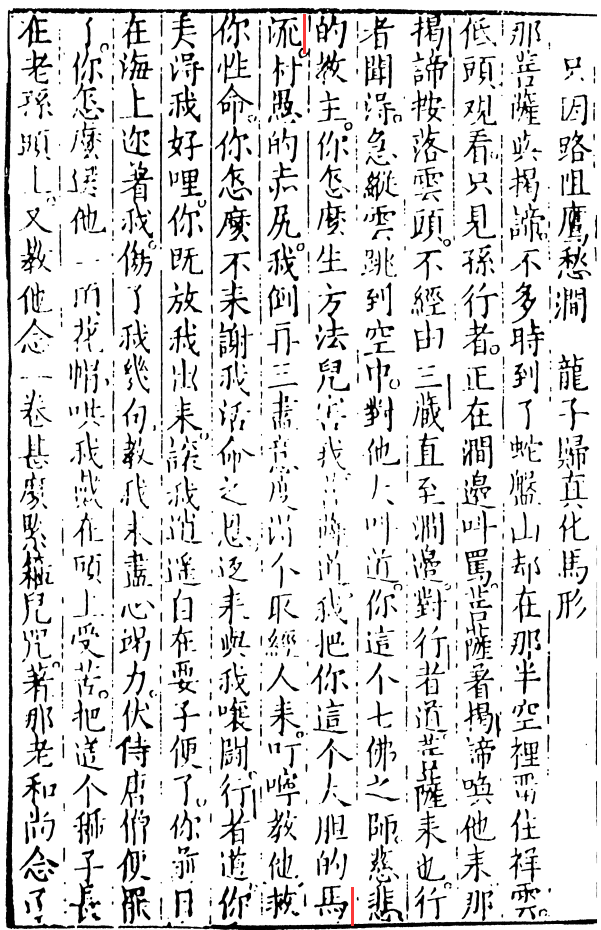 只因路阻鷹愁澗　龍子歸真化馬形
那菩薩與揭諦。不多時到了蛇盤山却在那半空裡畱住祥雲。
低頭观看。只見孫行者。正在澗邊叫罵。菩薩着揭諦喚他来那
揭諦按落雲頭。不經由三藏直至澗邊。對行者道。菩薩来也。行
者聞得。急縱雲跳到空中。對他大叫道。你這个七佛之師。慈悲
的教主。你怎麼生方法兒害我菩薩道。我把你這个大胆的馬
流。村愚的赤尻。我倒再三盡意度得个取經人来。叮嚀教他救
你性命。你怎麼不来謝我活命之恩。返来與我嚷鬧。行者道你
弄得我好哩。你既放我出来。讓我逍遥自在耍子便了。你前日
在海上迎着我。傷了我幾句。教我来盡心竭力。伏侍唐僧便罷
了。你怎麼送他一頂花帽。哄我戴在頭上受苦。把這个箍子長
在老孫頭上。又教他念一卷甚麼緊箍兒咒。著那老和尚念了